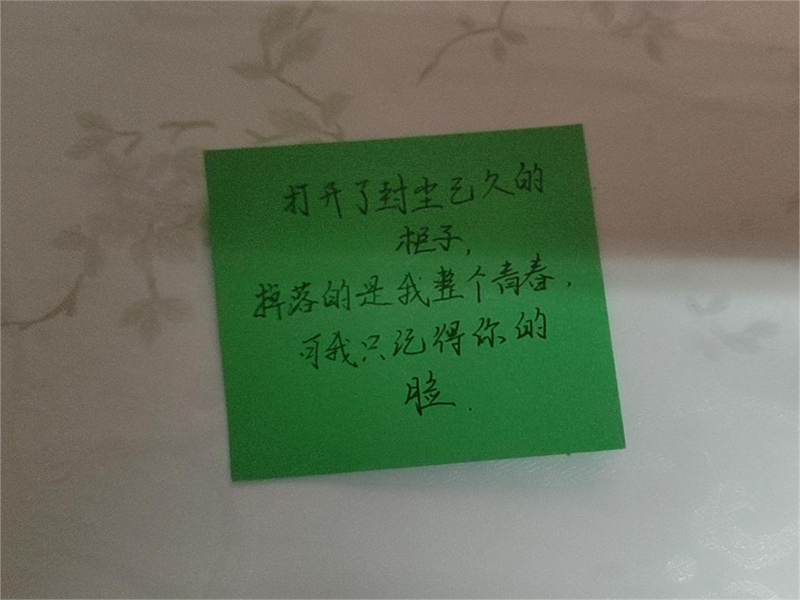 打开了封尘已久的
柜子,
掉落的是我整个青春,
可我只记得你的
脸.